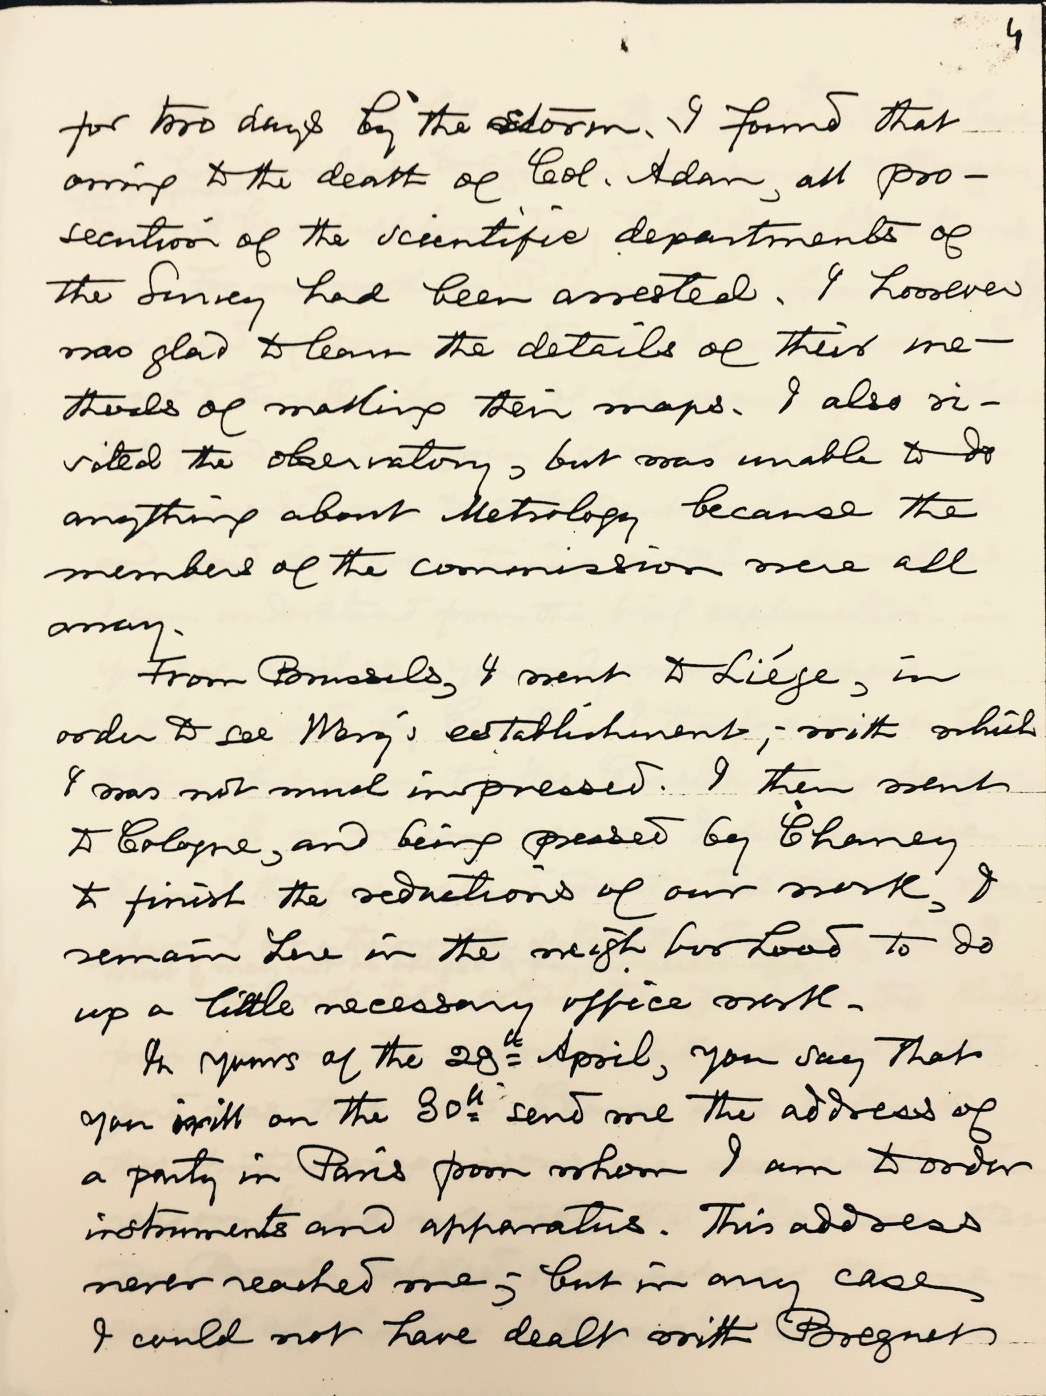 4
for two days by the storm. I found that
owing to the death of Col. Adan, all pro-
secution of the scientific departments of
the Survey had been arrested. I however
was glad to learn the details of their me-
thods of making their maps. I also vi-
sited the observatory, but was unable to do
anything about Metrology because the
members of the commission were all
away.
From Brussels, I went to Liége, in
order to see
establishment; - with which
I was not much impressed. I then went
to Cologne, and being pressed by Chaney
to finish the reductions of our work, I
remain here in the neighborhood to do
up a little necessary office work.
In yours of the 28th April, you say that
you will on the 30th send me the address of
a party in Paris from whom I am to order
instruments and apparatus. This address
never reached me; but in any case,
I could not have dealt with Breguet